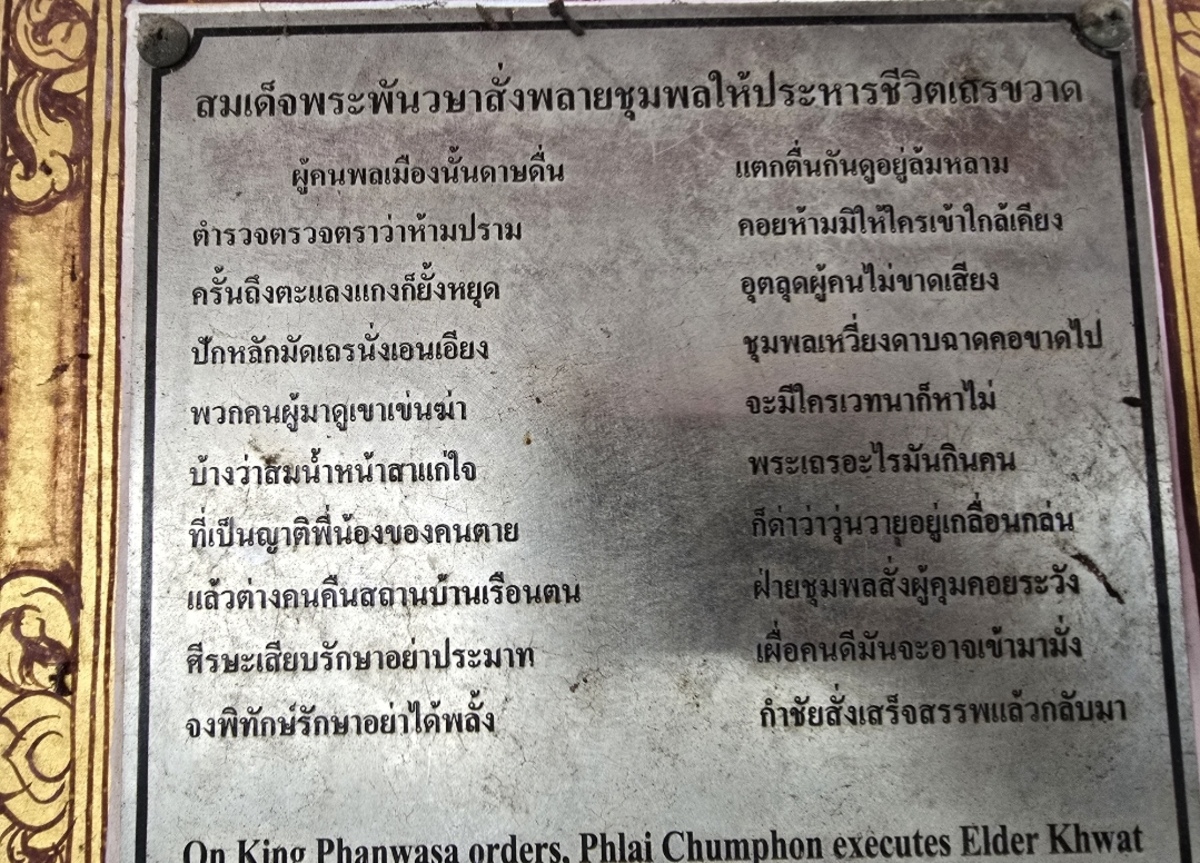 สมเด็จพระพันวษาสั่งพลายชุมพลให้ประหารชีวิตเถรขวาด
ผู้คนพลเมืองนั้นดาษดื่น แตกตื่นกันดูอยู่ล้มหลาม
ตำรวจตรวจตราว่าห้ามปราม คอยห้ามมิให้ใครเข้าใกล้เคียง
ครั้นถึงตะแลงแกงก็ยั้งหยุด อุตลุดผู้คนไม่ขาดเสียง
ปักหลักมัดเถรนั่งเอนเอียง ชุมพลเหวี่ยงดาบฉาดคอขาดไป
พวกคนผู้มาดูเขาเข่นฆ่า จะมีใครเวทนาก็หาไม่
บ้างว่าสมน้ำหน้าสาแก่ใจ พระเถรอะไรมันกินคน
ที่เป็นญาติพี่น้องของคนตาย ก็ด่าว่าวุ่นวายุอยู่เกลื่อนกล่น
แล้วต่างคนคืนสถานบ้านเรือนตน ฝ่ายชุมพลสั่งผู้คุมคอยระวัง
ศีรษะเสียบรักษาอย่าประมาท เผื่อคนดีมันจะอาจเข้ามามั่ง
จงพิทักษ์รักษาอย่าได้พลั้ง กำชัยสั่งเสร็จสรรพแล้วกลับมา
On King Phanwasa orders, Phlai Chumphon executes Elder Khwat